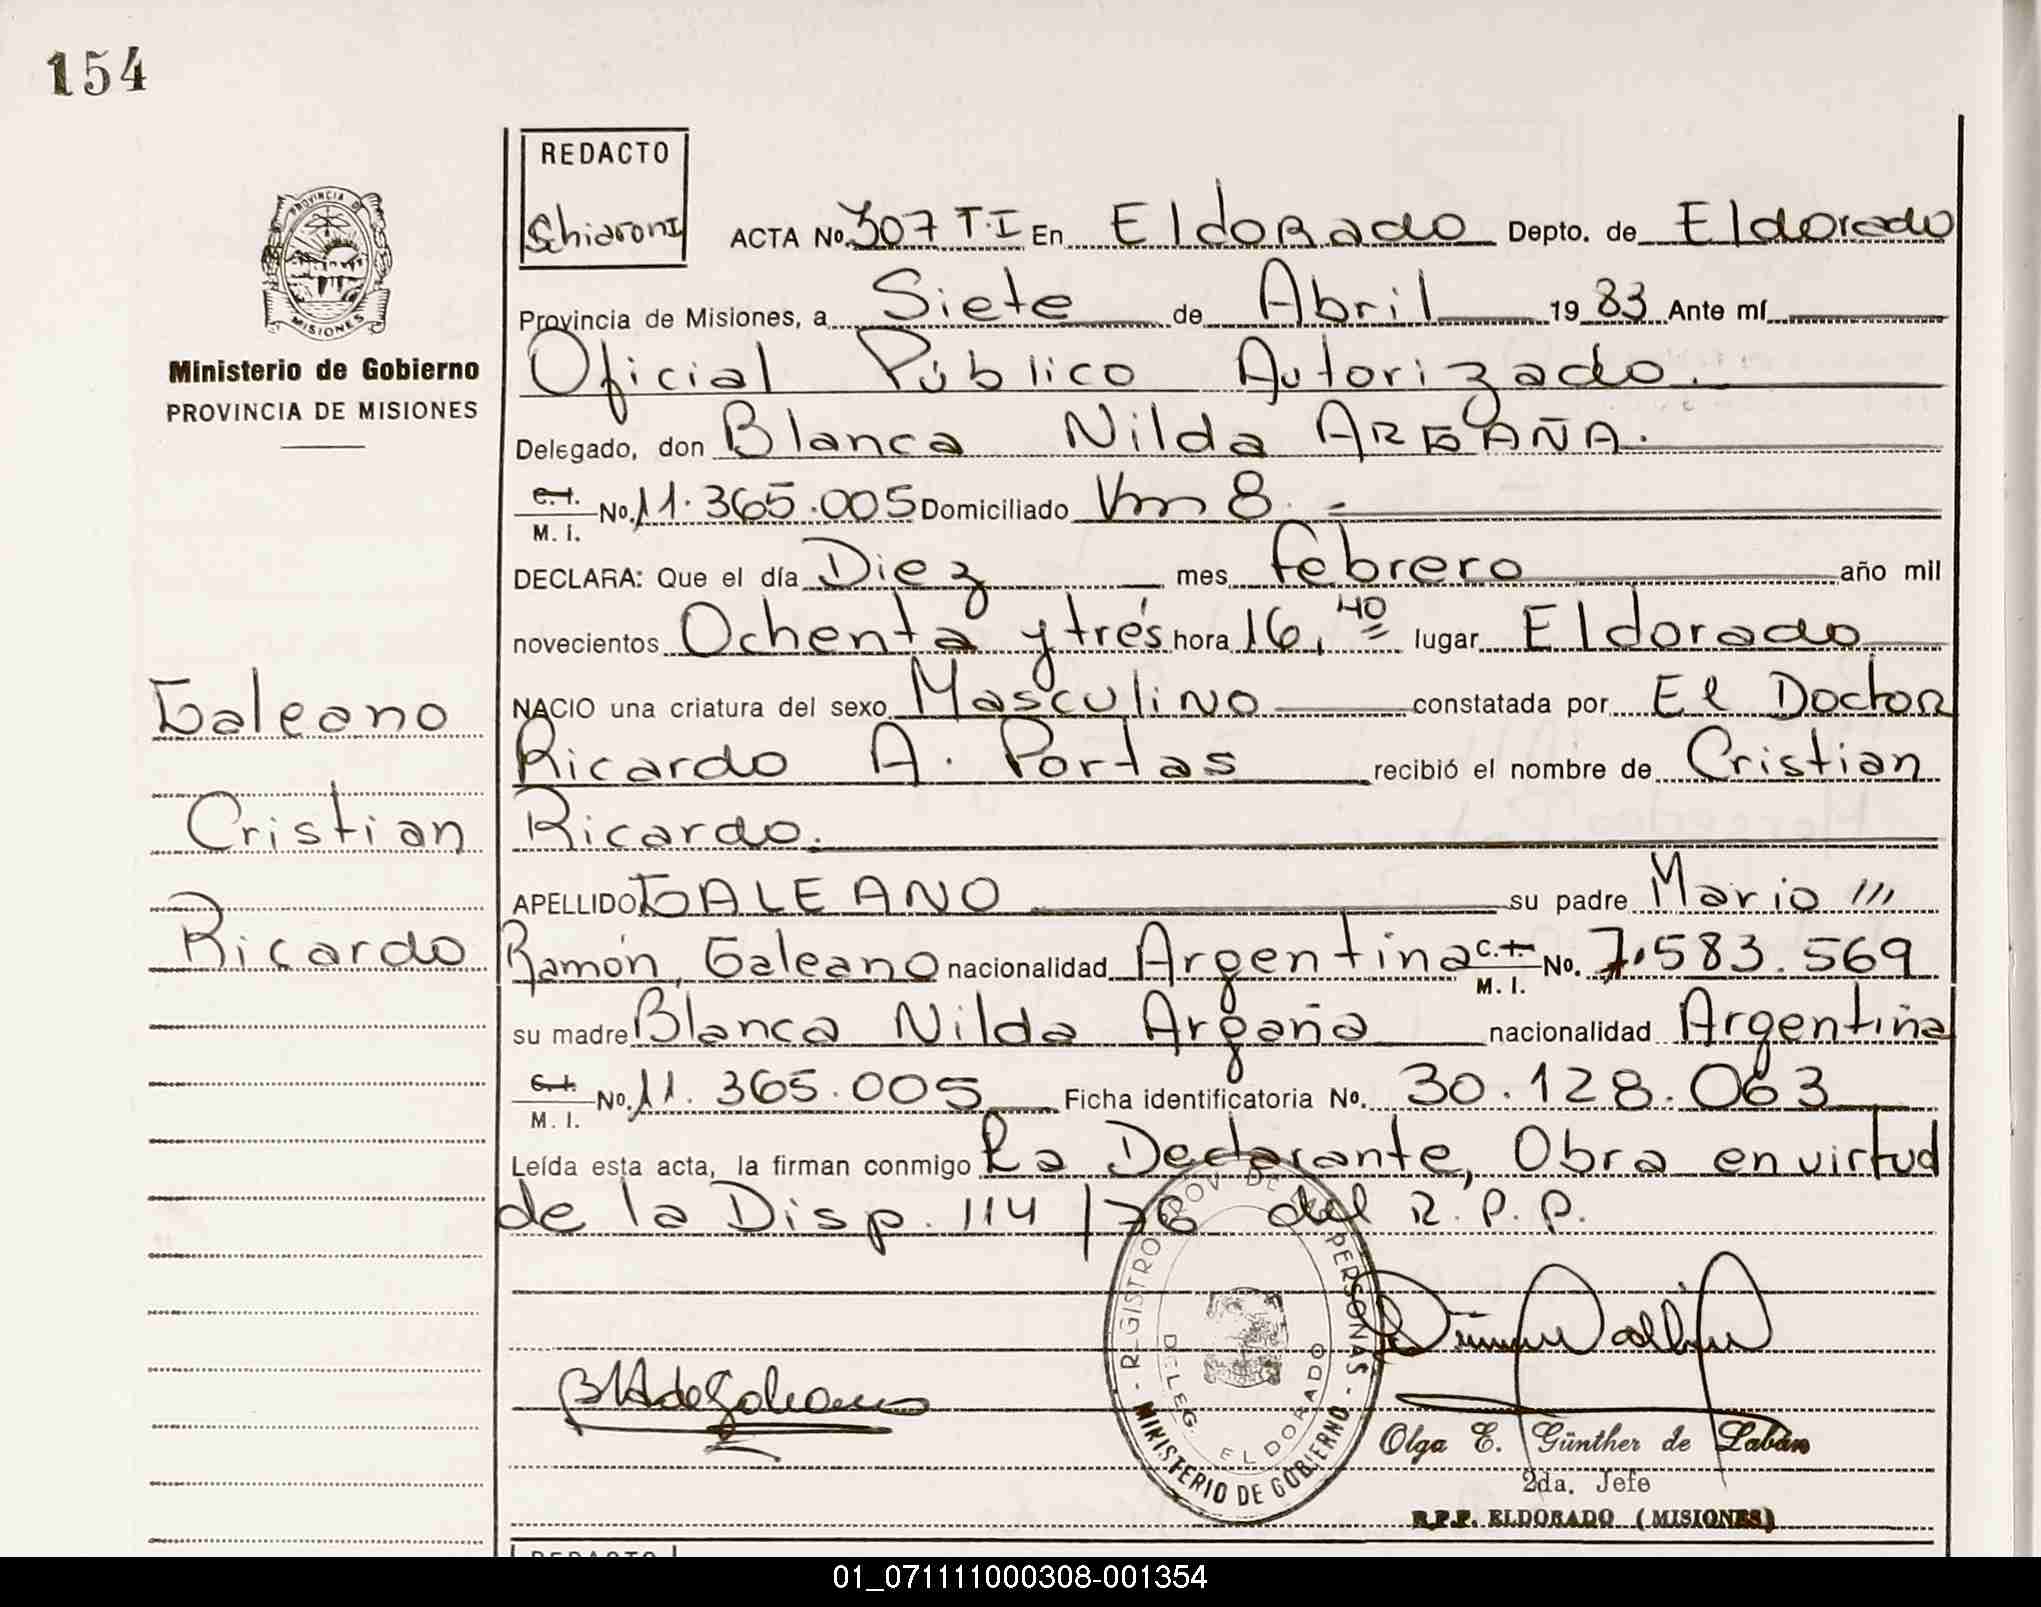 154
REDACTO
Schiaroni
ACTA No. 307 T.I En Eldorado Depto. de Eldorado
PROVINCIA DE
MISIONES
Ministerio de Gobierno
PROVINCIA DE MISIONES
Provincia de Misiones, a Siete de Abril 1983 Ante mí
Oficial Público Autorizado.
Delegado, don Blanca Nilda ARGAÑA.
C.I. M. I. No. 11.365.005 Domiciliado Km 8.
DECLARA: Que el día Diez mes febrero año mil
novecientos Ochenta y trés hora 16,40 lugar Eldorado
NACIO una criatura del sexo Masculino constatada por El Doctor
Ricardo A. Portas recibió el nombre de Cristian
Ricardo.
APELLIDO GALEANO su padre Mario
Ramón Galeano nacionalidad Argentina C.I. M. I. No. 7.583.569
su madre Blanca Nilda Argaña nacionalidad Argentina
C.I. M. I. No. 11.365.005 Ficha identificatoria No. 30.128.063
Leída esta acta, la firman conmigo La Declarante, Obra en virtud
de la Disp. 114/76 del R.P.P.
Galeano
Cristian
Ricardo
REGISTRO PROV. DE LAS PERSONAS
DELEG. ELDORADO
MINISTERIO DE GOBIERNO
BNA de Galeano
Olga E. Günther de Labán
2da. Jefe
R.P.P. ELDORADO (MISIONES)
REDACTO
01_071111000308-001354